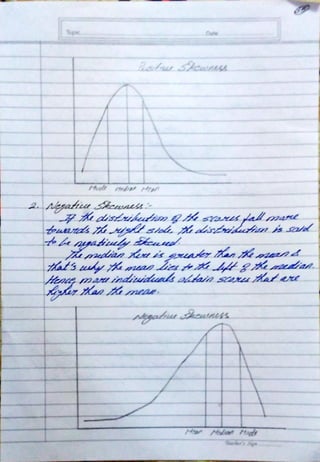 Topic
Date
Positive Skewness
Mode Median Mean
2. Negative Skewness:-
If the distribution of the scores fall more
towards the right side. The distribution is said
to be negatively skewed.
The median here is greater than the mean &
that's why the mean lies to the left of the median.
Hence more individuals obtain scores that are
higher than the mean.
Negative Skewness
Mean Median Mode
Teacher's Sign